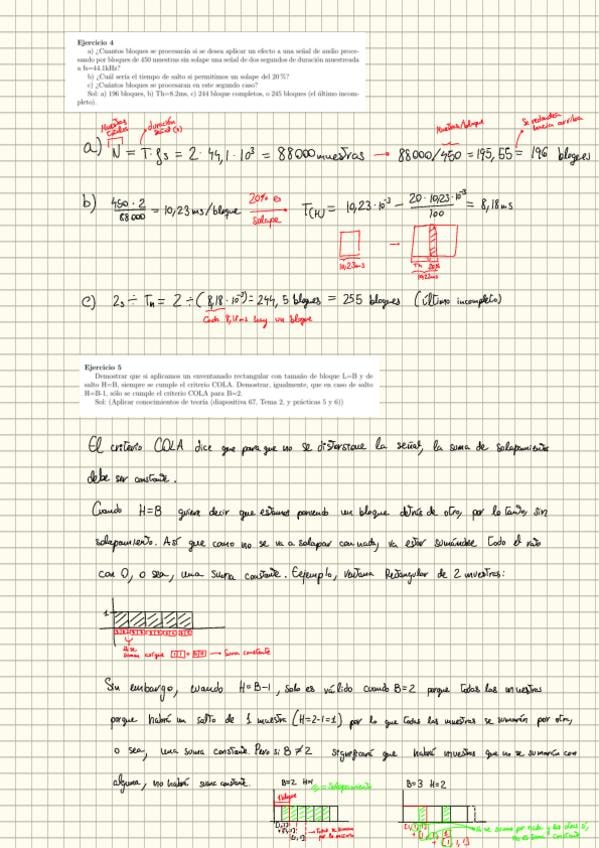 Ejercicio 4
a) ¿Cuantos bloques se procesarán si se desea aplicar un efecto a una señal de audio proce-
sando por bloques de 450 muestras sin solape una señal de dos segundos de duración muestreada
a fs=44.1kHz?
b) ¿Cuál sería el tiempo de salto si permitimos un solape del 20 %?
c) ¿Cuántos bloques se procesaran en este segundo caso?
Sol: a) 196 bloques, b) Th=8.2ms, c) 244 bloque completos, o 245 bloques (el último incom-
pleto).
Muestras totales
duración señal (s)
Muestras/bloque
Se redondea hacia arriba
a) N = T·fs = 2 · 44,1 · 10³ = 88000 muestras → 88000/450 = 195,55 = 196 bloques
b) 450 · 2 / 88000 = 10,23 ms/bloque 20% Solape → T(H) = 10,23·10⁻³ − 20·10,23·10⁻³ / 100 = 8,18 ms
10,23ms
TH 20%
10,23ms
c) 2s ÷ TH = 2 ÷ (8,18 · 10⁻³) = 244,5 bloques = 255 bloques (último incompleto)
Cada 8,18ms hay un bloque
Ejercicio 5
Demostrar que si aplicamos un enventanado rectangular con tamaño de bloque L=B y de
salto H=B, siempre se cumple el criterio COLA. Demostrar, igualmente, que en caso de salto
H=B-1, sólo se cumple el criterio COLA para B=2.
Sol: (Aplicar conocimientos de teoría (diapositiva 67, Tema 2, y prácticas 5 y 6))
El criterio COLA dice que para que no se distorsione la señal, la suma de solapamiento
debe ser constante.
Cuando H=B quiere decir que estamos poniendo un bloque detrás de otro, por lo tanto, sin
solapamiento. Así que como no se va a solapar con nada, va estar sumándose todo el rato
con 0, o sea, una suma constante. Ejemplo, ventana Rectangular de 2 muestras:
1
Suma constante
Sin embargo, cuando H=B-1, solo es válido cuando B=2 porque todas las muestras
porque habrá un salto de 1 muestra (H=2-1=1) por lo que todas las muestras se sumarán por otro,
o sea, una suma constante. Pero si B≠2 significará que habrá muestras que no se sumaría con
alguna, no habrá suma constante.
B=2
= Solapamiento
1 bloque
B=3 H=2